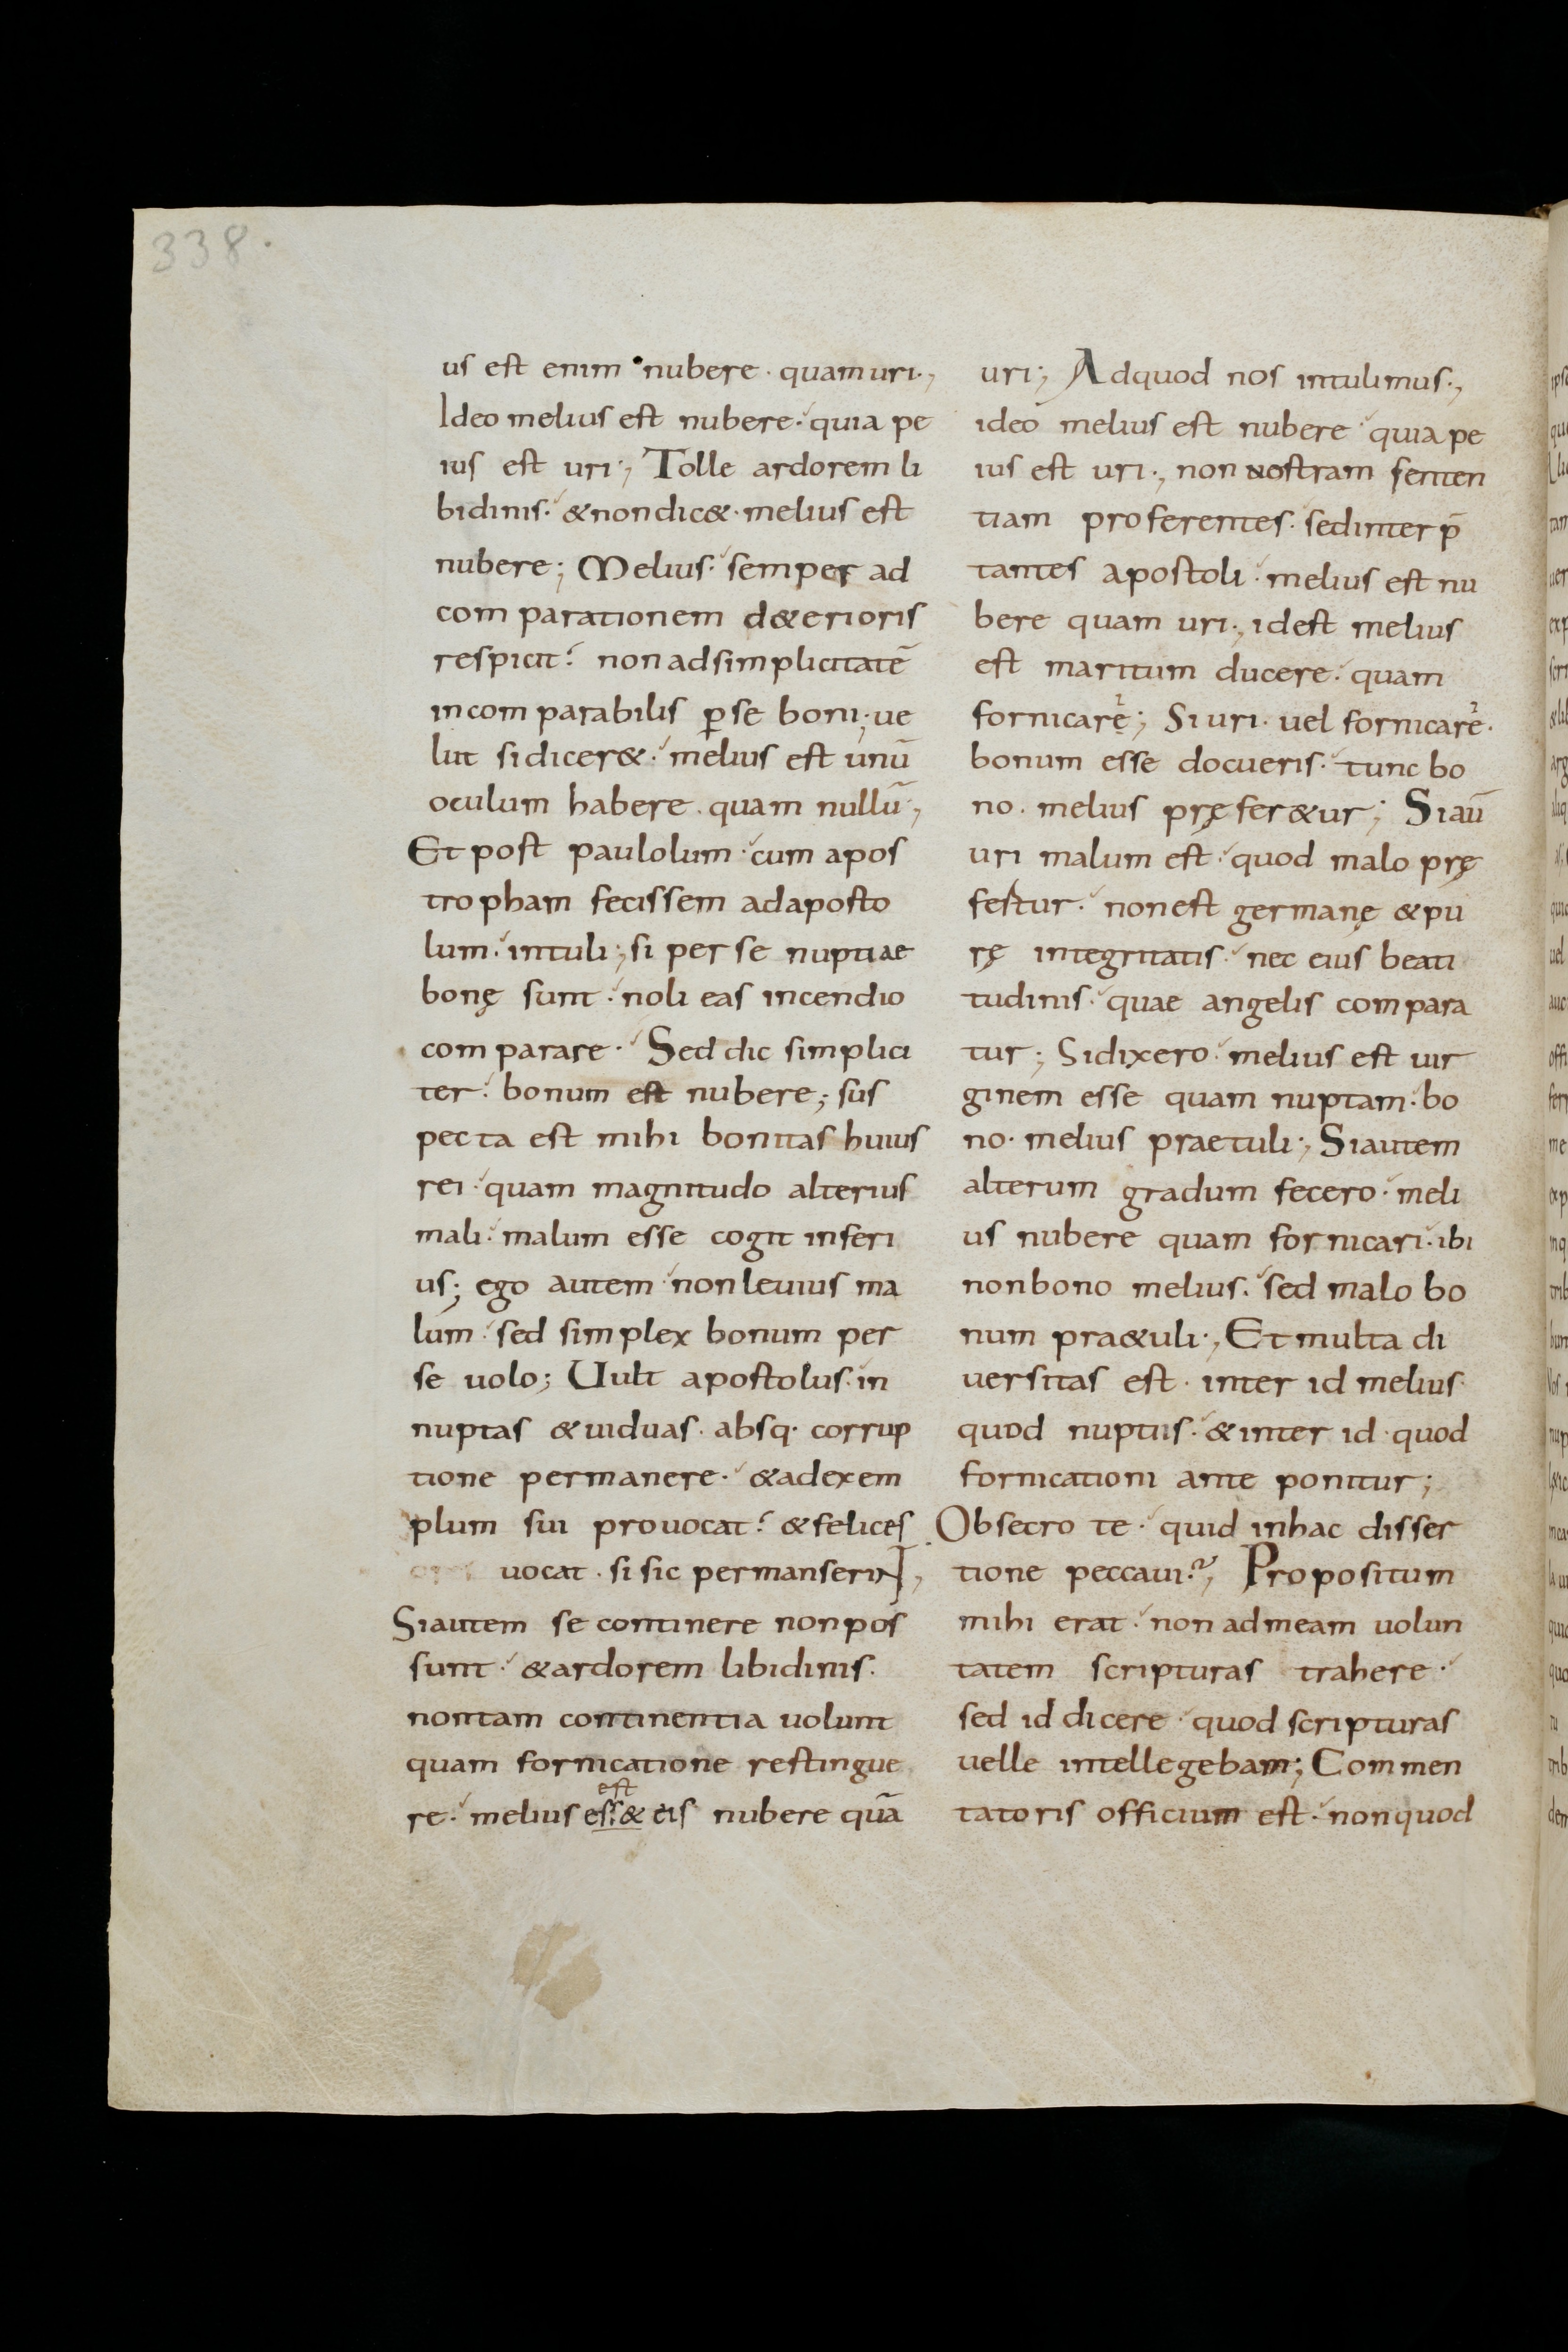 338.
us est enim nubere · quam uri·,
Ideo melius est nubere · quia pe
ius est uri·, Tolle ardorem li
bidinis · & non dic& · melius est
nubere; Melius · semper ad
comparationem d&erioris
respicit · non ad simplicitatē
incomparabilis ꝑ se boni; ue
lut si dicer& · melius est unū
oculum habere · quam nullū·,
Et post paulolum · cum apos
tropham fecissem ad aposto
lum · intuli·, si per se nuptiae
bonę sunt · noli eas incendio
comparare · Sed dic simplici
ter · bonum est nubere; sus
pecta est mihi bonitas huius
rei · quam magnitudo alterius
mali · malum esse cogit inferi
us; ego autem · non leuius ma
lum · sed simplex bonum per
se uolo; Uult apostolus · in
nuptas & uiduas · absq· corrup
tione permanere · & ad exem
plum sui prouocat · & felices
uocat · si sic permanserint,
Si autem se continere non pos
sunt · & ardorem libidinis ·
non tam continentia uolunt
quam fornicatione restingue
est
re · melius ess& eis nubere quā
uri; Ad quod nos intulimus·,
ideo melius est nubere · quia pe
ius est uri·, non nostram senten
tiam proferentes · sed interp̄
tantes apostoli · melius est nu
bere quam uri·, id est melius
est maritum ducere · quam
fornicarẹi; Si uri · uel fornicarẹi ·
bonum esse docueris · tunc bo
no · melius pręfer&ur; Si aū
uri malum est · quod malo prę
fertur · non est germanę & pu
rę integritatis · nec eius beati
tudinis · quae angelis compara
tur; Si dixero · melius est uir
ginem esse quam nuptam · bo
no · melius praetuli·, Si autem
alterum gradum fecero · meli
us nubere quam fornicari · ibi
non bono melius · sed malo bo
num pra&uli·, Et multa di
uersitas est · inter id melius
quod nuptiis · & inter id · quod
fornicationi ante ponitur;
Obsecro te · quid in hac disser
tione peccaui?, Propositum
mihi erat · non ad meam uolun
tatem scripturas trahere ·
sed id dicere · quod scripturas
uelle intellegebam; Commen
tatoris officium est · non quod